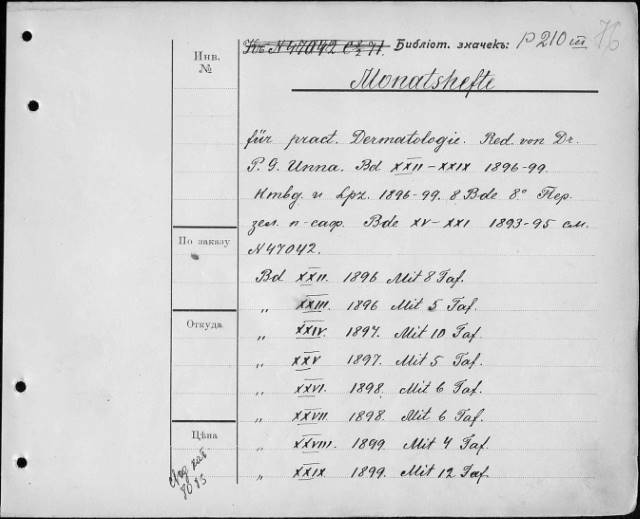 Къ N 47042 C 2/2 71. Библіот. значекъ: P 210 III 76
Инв. №
Monatshefte
für pract. Dermatologie. Red. von Dr.
P. G. Unna. Bd XXII–XXIX 1896-99.
Hmbg. u Lpz. 1896-99. 8 Bde 8.° Пер.
зел. п-саф. Bde XV–XXI 1893-95 см.
N 47042.
По заказу
Bd XXII. 1896 Mit 8 Taf.
„ XXIII. 1896 Mit 5 Taf.
Откуда
„ XXIV. 1897. Mit 10 Taf.
„ XXV 1897. Mit 5 Taf.
„ XXVI. 1898. Mit 6 Taf.
„ XXVII. 1898. Mit 6 Taf.
Цѣна
„ XXVIII. 1899. Mit 4 Taf.
„ XXIX 1899. Mit 12 Taf.
кат.